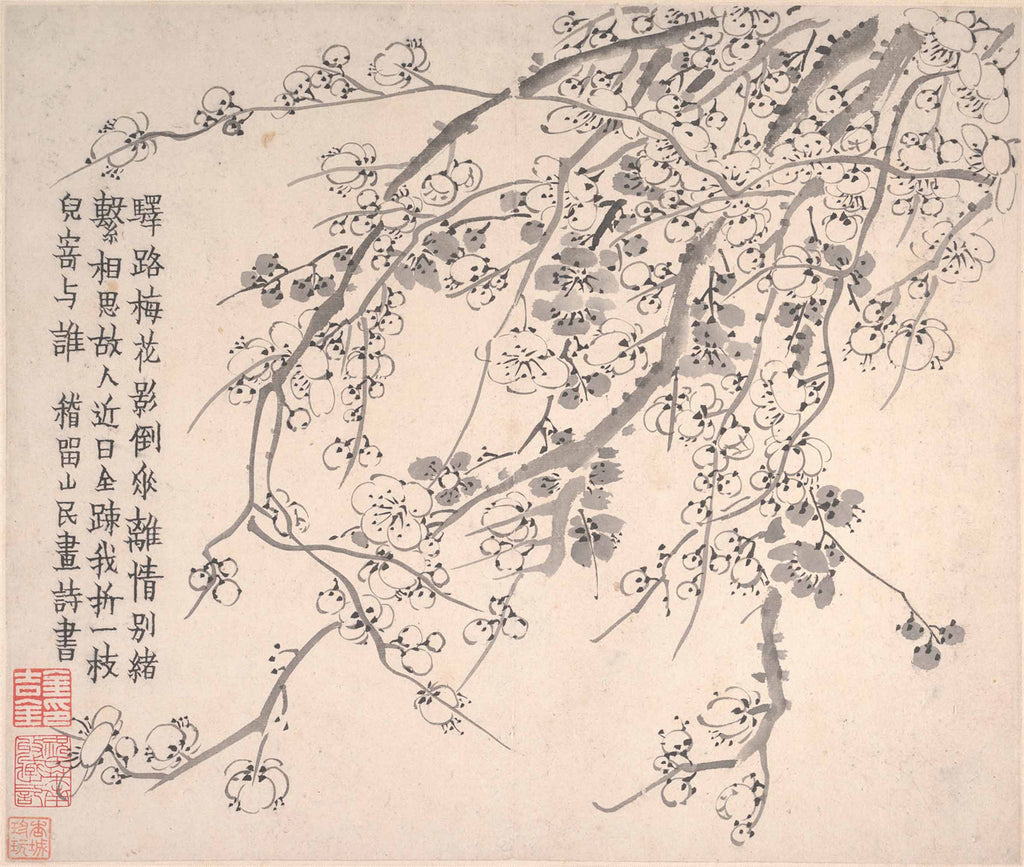 驛路梅花影倒垂離情別緒
繫相思故人近日全疎我折一枝
兒寄与誰 稽留山民畫詩書
金吉金印